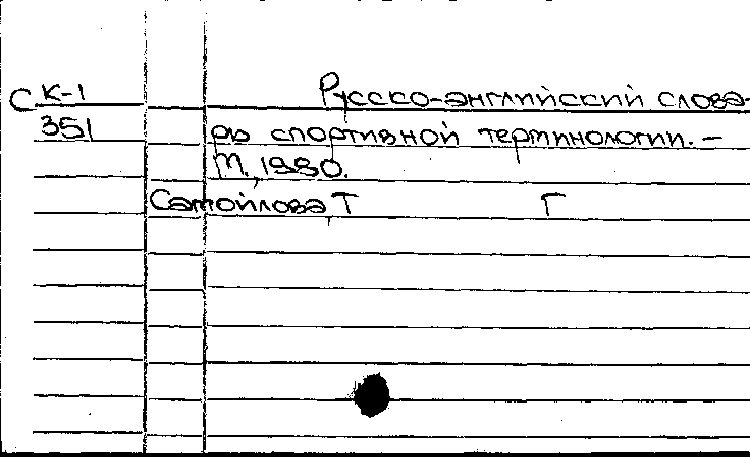 С К-1 Русско-английский слова-
351 рь спортивной терминологии. –
М., 1980.
Самойлова, Т Г